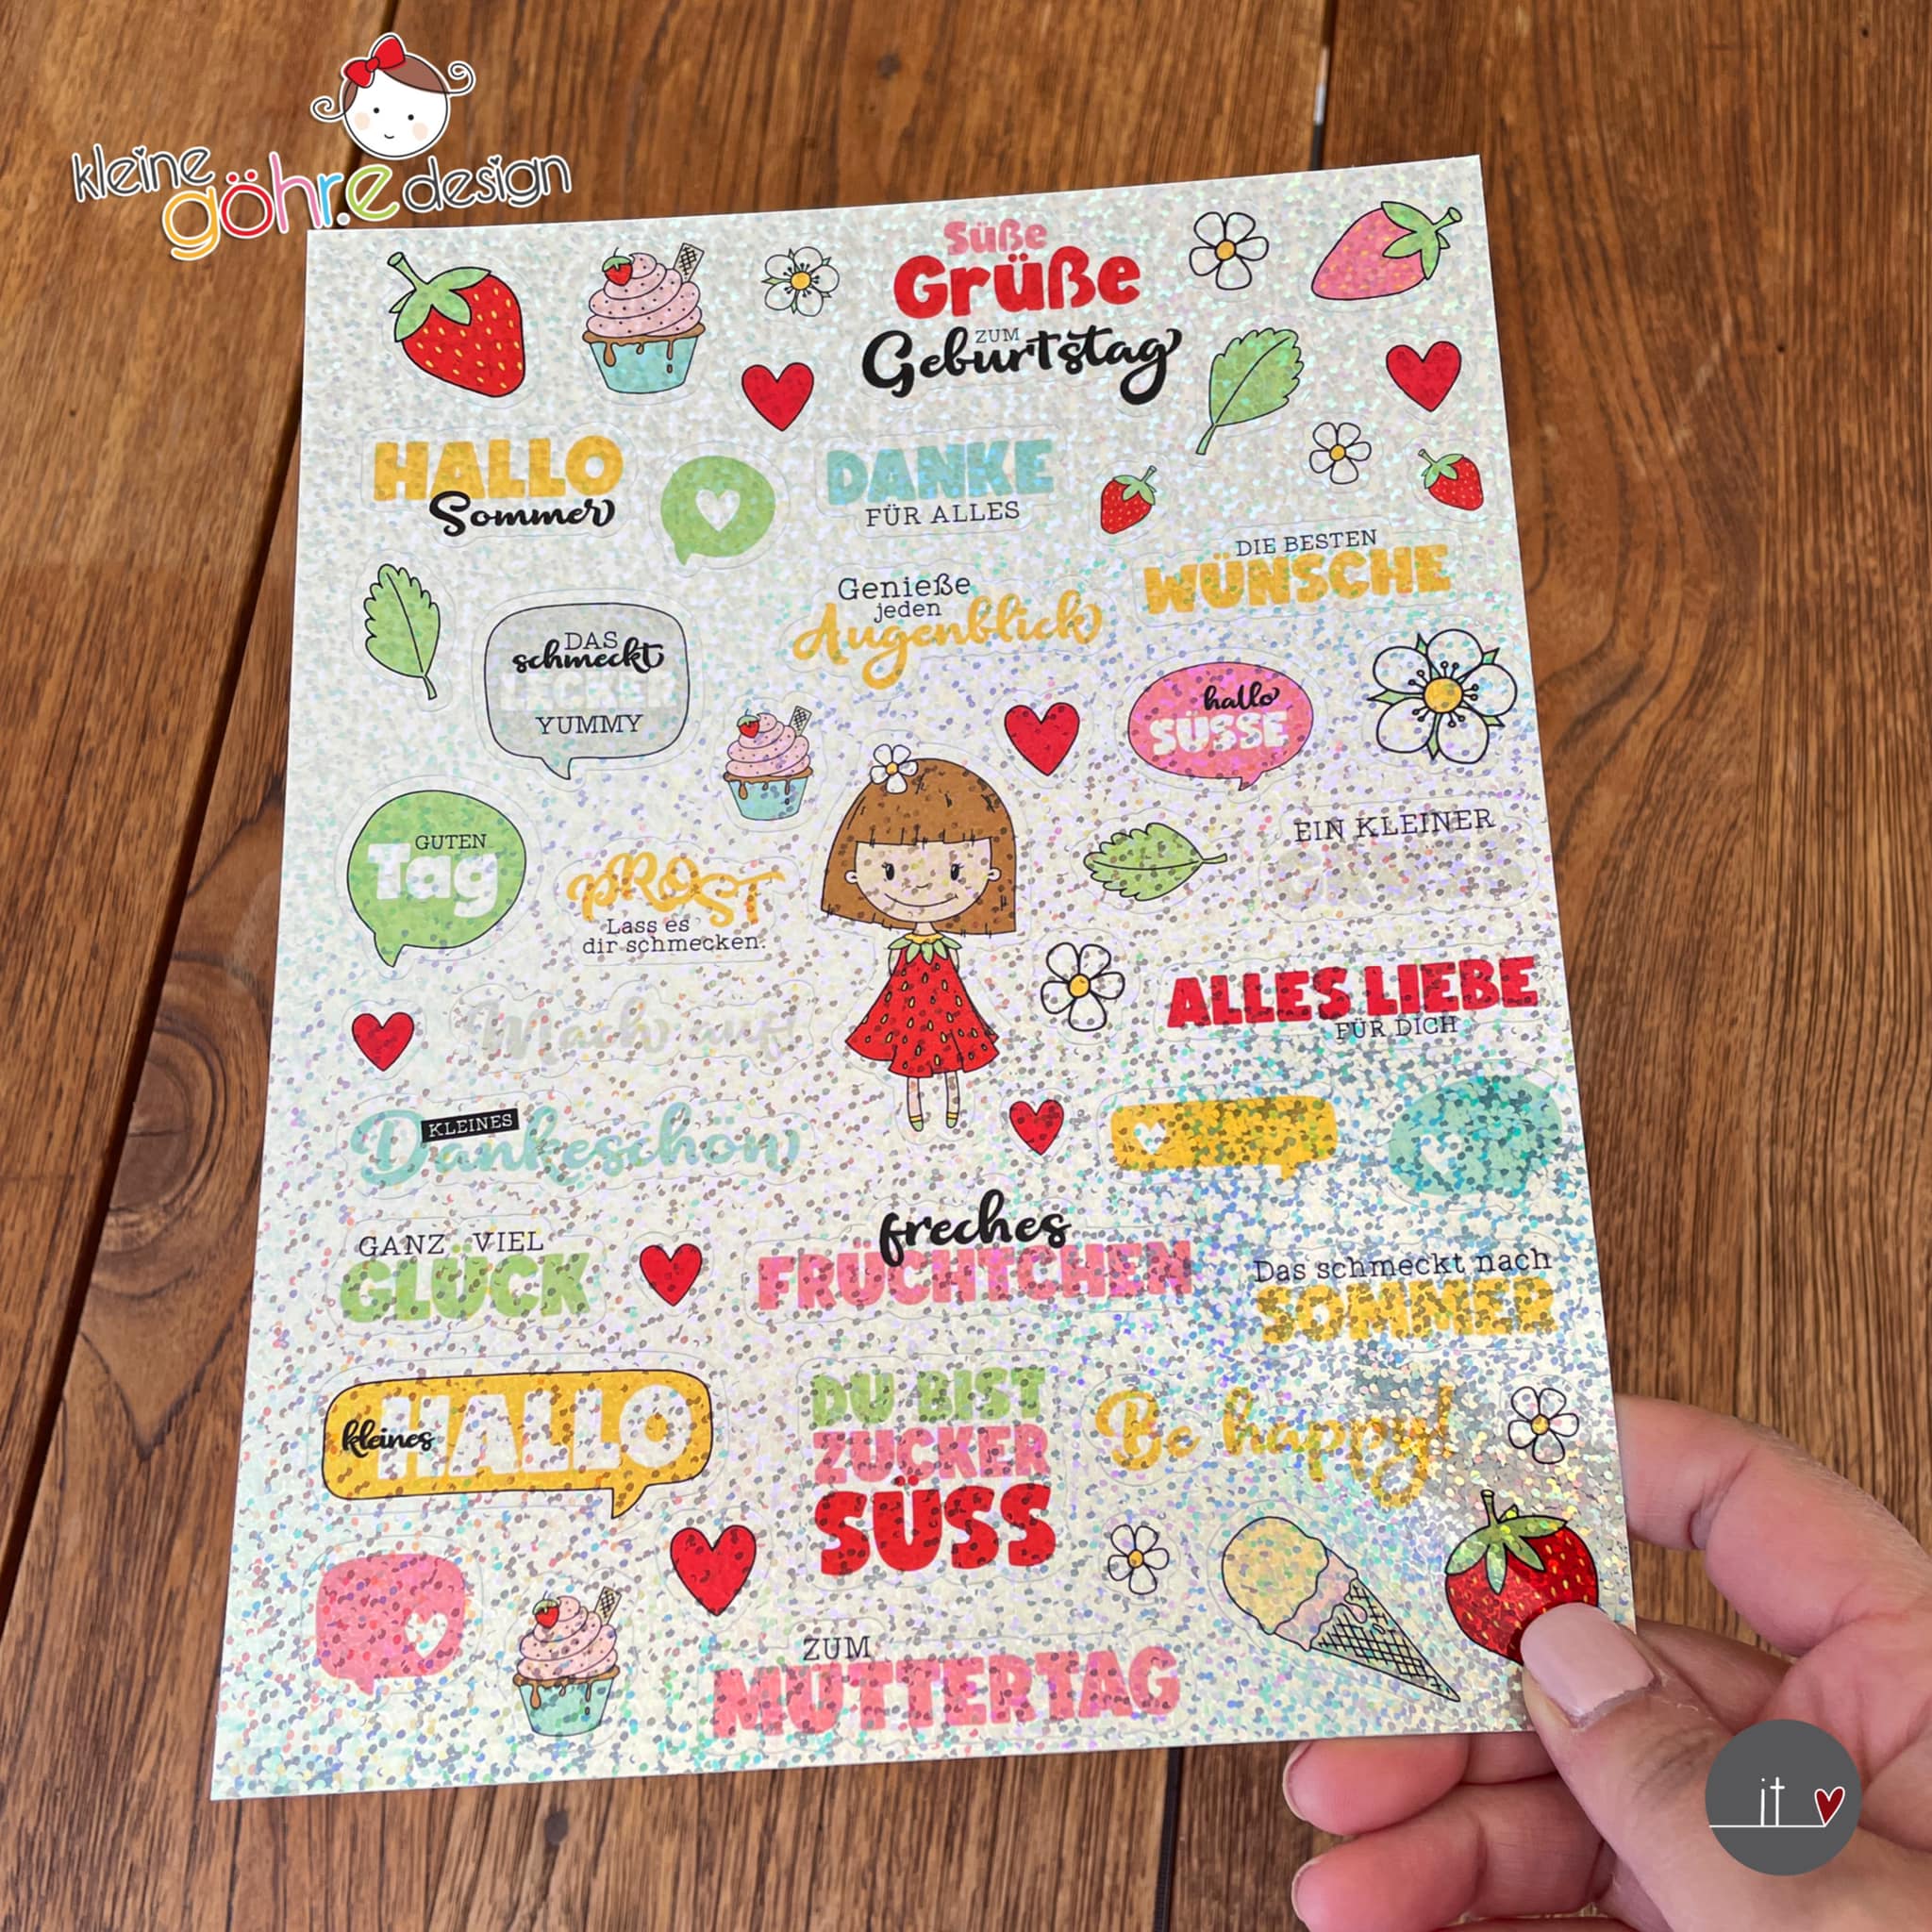 kleine
göhr.e design
Süße
Grüße
ZUM
Geburtstag
HALLO
Sommer
DANKE
FÜR ALLES
DIE BESTEN
WÜNSCHE
Genieße
jeden
Augenblick
DAS
schmeckt
LECKER
YUMMY
hallo
SÜSSE
GUTEN
Tag
PROST
Lass es
dir schmecken.
EIN KLEINER
Mach auf
ALLES LIEBE
FÜR DICH
KLEINES
Dankeschön
GANZ VIEL
GLÜCK
freches
FRÜCHTCHEN
Das schmeckt nach
SOMMER
kleines
HALLO
DU BIST
ZUCKER
SÜSS
Be happy!
ZUM
MUTTERTAG
it